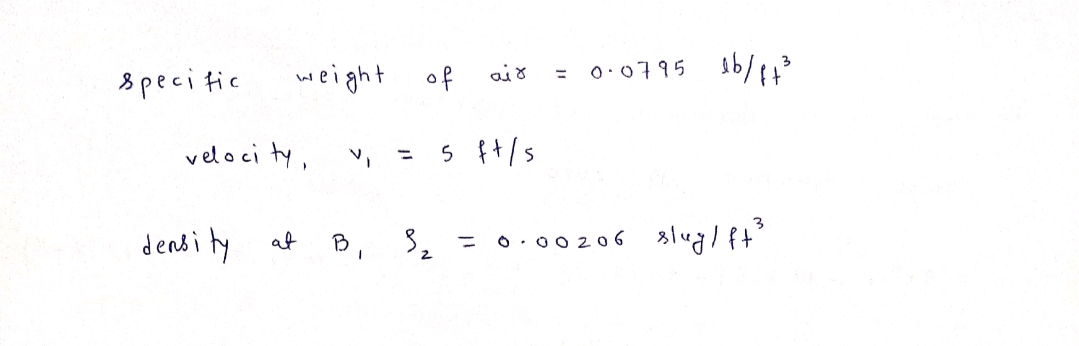 specific weight of air = 0.0795 lb/ft³
velocity, v₁ = 5 ft/s
density at B, ρ₂ = 0.00206 slug/ft³